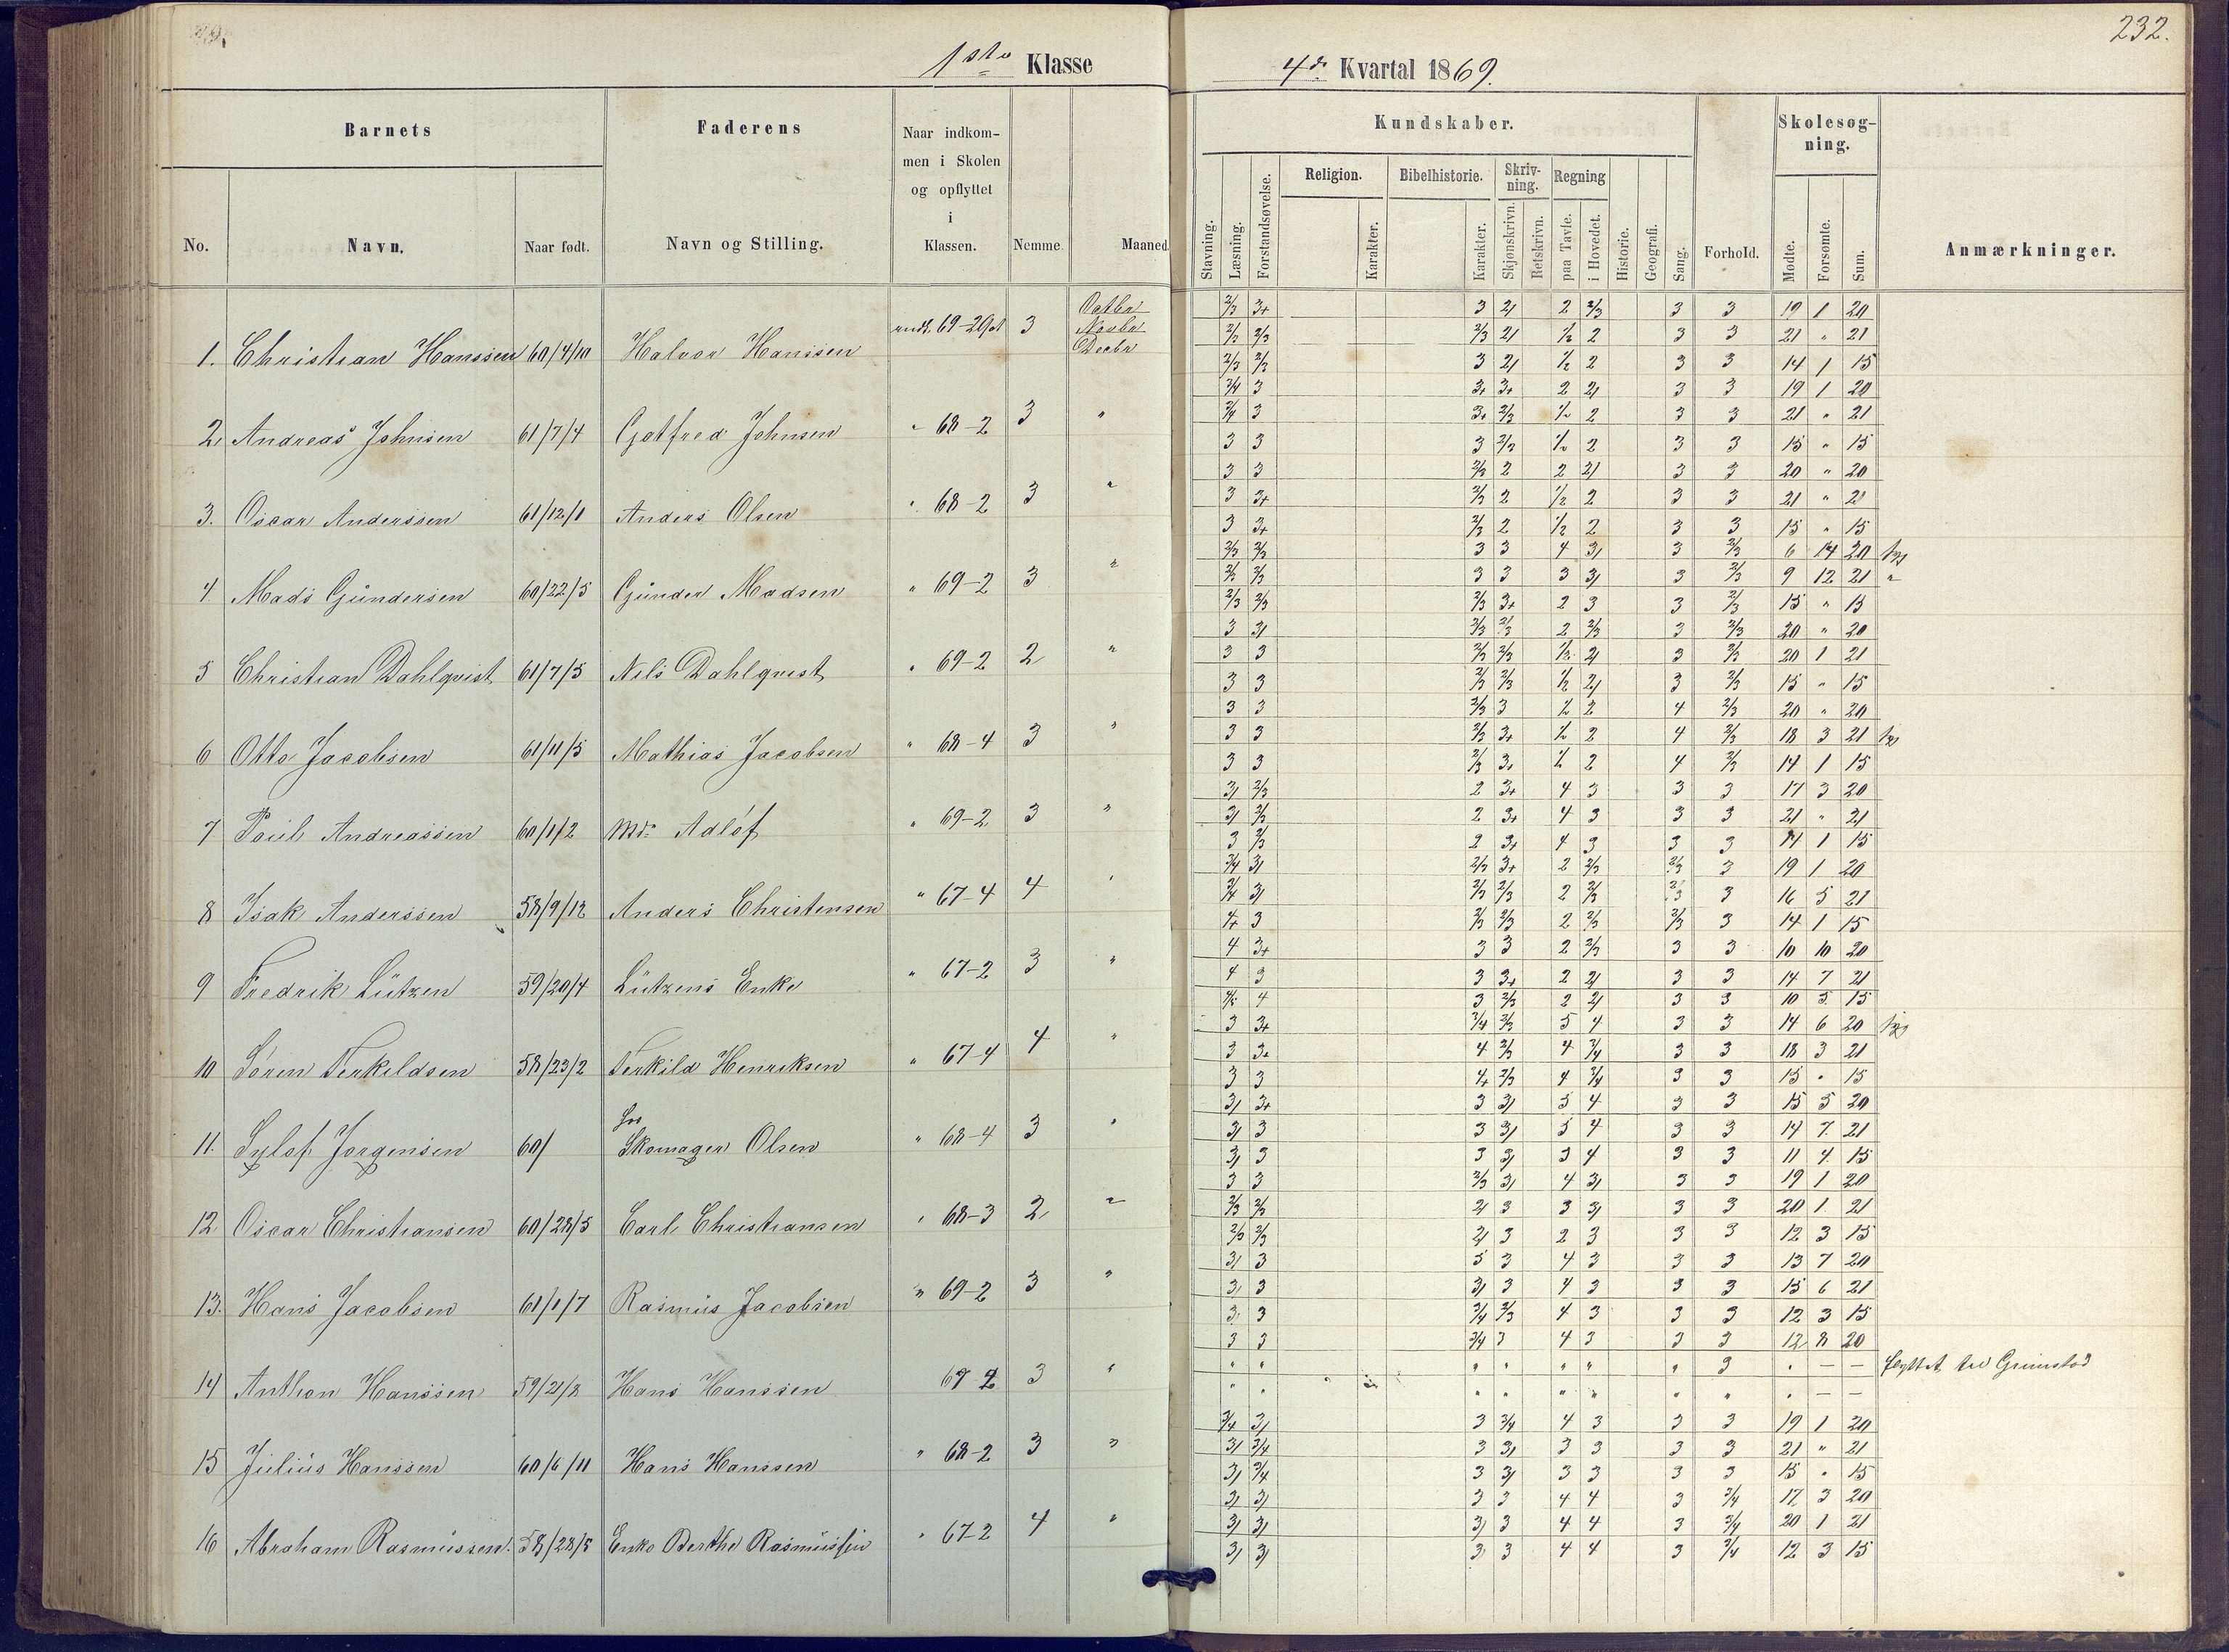 232.
1ste Klasse
4de Kvartal 1869.
Barnets
Faderens
Naar indkom-
men i Skolen
og opflyttet
i
Klassen.
No.
Navn.
Naar født.
Navn og Stilling.
Nemme
Maaned.
Kundskaber.
Skolesøg-
ning.
Religion.
Bibelhistorie.
Skriv-
ning.
Regning
Stavning.
Læsning.
Forstandsøvelse.
Karakter.
Karakter.
Skjønskrivn.
Retskrivn.
paa Tavle.
i Hovedet.
Historie.
Geografi.
Sang.
Forhold.
Mødte.
Forsømte.
Sum.
Anmærkninger.
Octbr
Novbr
Decbr
1. Christian Hanssen 60/4/10 Halvor Hanssen 69-2 3
2 Andreas Johnsen 61/7/4 Gotfred Johnsen " 68-2 3 "
3. Oscar Anderssen 61/12/1 Anders Olsen " 68-2 3 "
4 Mads Gundersen 60/22/5 Gunder Madsen " 69-2 3 "
5 Christian Dahlqvist 61/7/5 Nils Dahlqvist " 69-2 2 "
6 Otto Jacobsen 61/11/5 Mathias Jacobsen " 68-4 3 "
7 Poul Andreassen 60/1/2 Adlof " 69-2 3 "
8 Isak Anderssen 58/9/12 Anders Christensen " 67-4 4 "
9 Fredrik Lützen 59/20/4 Lützens Enke " 67-2 3 "
10 Søren Terkildsen 58/23/2 Terkild Henriksen " 67-4 4 "
11. Jørgensen 60/ Skomager Olsen " 68-4 3 "
12 Oscar Christiansen 60/28/5 Carl Christiansen " 68-3 2 "
13. Hans Jacobsen 61/1/7 Rasmus Jacobsen " 69-2 3 "
14 Anthon Hanssen 59/21/8 Hans Hanssen 67 2 3 "
15 Julius Hanssen 60/6/11 Hans Hanssen " 68-2 3 "
16 Abraham Rasmussen. 58/28/5 Enke Berthe Rasmussen " 67-2 4 "
2/3 3+ 3 2/ 2 2/3 3 3 19 1 20
2/3 2/3 2/3 2/ 1/2 2 3 3 21 " 21
2/3 2/3 3 2/ 1/2 2 3 3 14 1 15
3/4 3 3+ 3+ 2 2/ 3 3 19 1 20
3/4 3 3+ 2/3 1/2 2 3 3 21 " 21
3 3 3 2/3 1/2 2 3 3 15 " 15
3 3 2/3 2 2 2/ 3 3 20 " 20
3 3+ 2/3 2 1/2 2 3 3 21 " 21
3 3+ 2/3 2 1/2 2 3 3 15 " 15
2/3 2/3 3 3 4 3/ 3 2/3 6 14 20
2/3 2/3 3 3 3 3/ 3 2/3 9 12 21 "
2/3 2/3 2/3 3+ 2 3 3 2/3 15 " 15
3 3/ 2/3 2/3 2 2/3 3 2/3 20 " 20
3 3 2/3 2/3 1/2 2/ 3 2/3 20 1 21
3 3 2/3 2/3 1/2 2/ 3 2/3 15 " 15
3 3 2/3 3 1/2 2 4 2/3 20 " 20
3 3 2/3 3+ 1/2 2 4 2/3 18 3 21
3 3 2/3 3+ 1/2 2 4 2/3 14 1 15
3/ 2/3 2 3+ 4 3 3 3 17 3 20
3/ 2/3 2 3+ 4 3 3 3 21 " 21
3 2/3 2 3+ 4 3 3 3 14 1 15
3/4 3/ 2/3 3+ 2 2/3 2/3 3 19 1 20
3/4 3/ 2/3 2/3 2 2/3 2/3 3 16 5 21
4+ 3 2/3 2/3 2 2/3 2/3 3 14 1 15
4 3+ 3 3 2 2/3 3 3 10 10 20
4 3 3 3+ 2 2/ 3 3 14 7 21
4/5 4 3 2/3 2 2/ 3 3 10 5 15
3 3+ 3/4 2/3 5 4 3 3 14 6 20
3 3+ 4 2/3 4 3/4 3 3 18 3 21
3 3 4+ 2/3 4 3/4 3 3 15 " 15
3/ 3+ 3 3/ 5 4 3 3 15 5 20
3/ 3 3 3/ 5 4 3 3 14 7 21
3/ 3 3 3/ 3 4 3 3 11 4 15
3 3 2/3 3/ 4 3/ 3 3 19 1 20
2/3 2/3 2/ 3 3 3/ 3 3 20 1 21
2/3 2/3 2/ 3 2 3 3 3 12 3 15
3/ 3 3 3 4 3 3 3 13 7 20
3/ 3 3/ 3 4 3 3 3 15 6 21
3/ 3 3/4 2/3 4 3 3 3 12 3 15
3 3 3/4 3 4 3 3 3 12 8 20
" " " " " " " 3 " — — flyttet til Grimstad
" " " " " " " " " — —
3/4 3/ 3 3/4 4 3 3 3 19 1 20
3/ 3/4 3 3/ 3 3 3 3 21 " 21
3/ 3/4 3 3/ 3 3 3 3 15 " 15
3/ 3/ 3 3 4 4 3 3/4 17 3 20
3/ 3/ 3/ 3 4 4 3 3/4 20 1 21
3/ 3/ 3/ 3 4 4 3 3/4 12 3 15